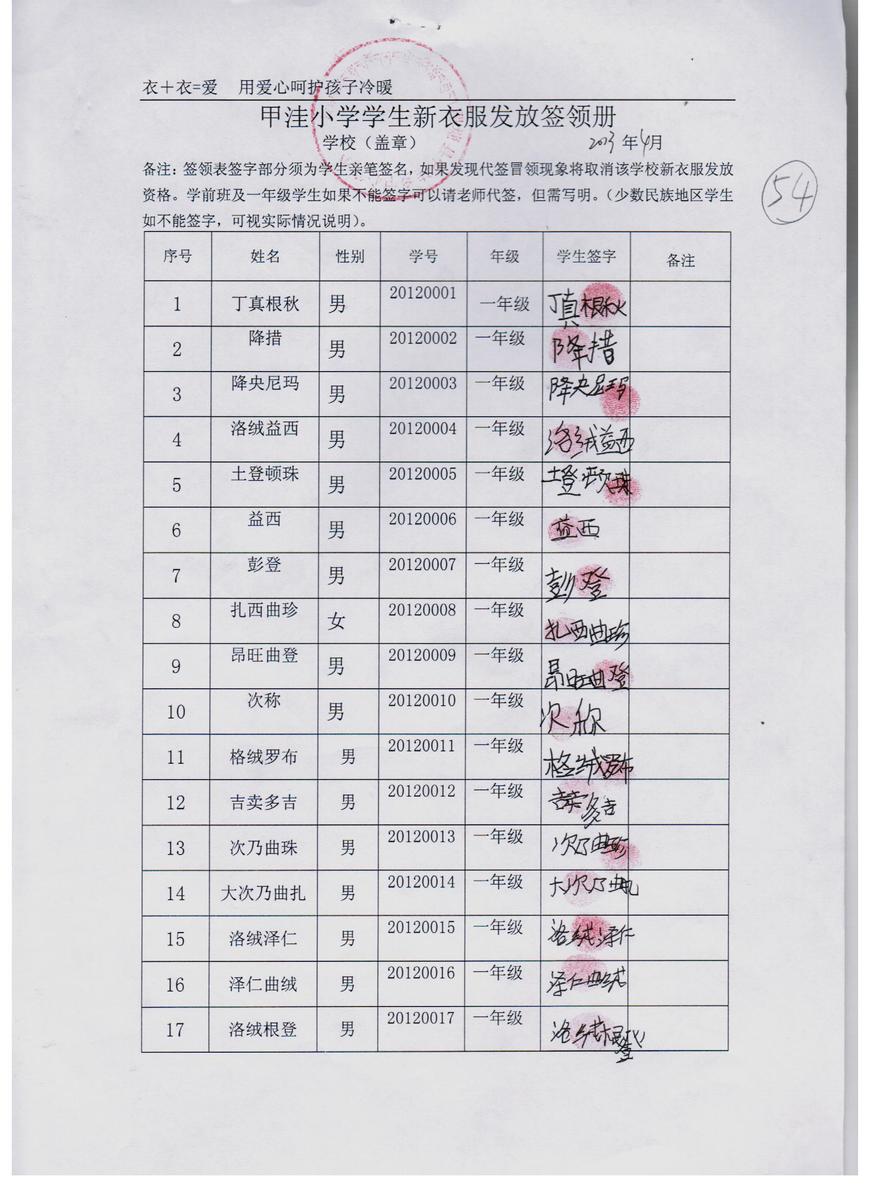 衣＋衣=爱 用爱心呵护孩子冷暖
甲洼小学学生新衣服发放签领册
学校（盖章） 2013 年 4月
备注：签领表签字部分须为学生亲笔签名，如果发现代签冒领现象将取消该学校新衣服发放
资格。学前班及一年级学生如果不能签字可以请老师代签，但需写明。（少数民族地区学生
如不能签字，可视实际情况说明）。
54
序号 姓名 性别 学号 年级 学生签字 备注
1 丁真根秋 男 20120001 一年级 丁真根秋
2 降措 男 20120002 一年级 降措
3 降央尼玛 男 20120003 一年级 降央尼玛
4 洛绒益西 男 20120004 一年级 洛绒益西
5 土登顿珠 男 20120005 一年级 土登顿珠
6 益西 男 20120006 一年级 益西
7 彭登 男 20120007 一年级 彭登
8 扎西曲珍 女 20120008 一年级 扎西曲珍
9 昂旺曲登 男 20120009 一年级 昂旺曲登
10 次称 男 20120010 一年级 次称
11 格绒罗布 男 20120011 一年级 格绒罗布
12 吉卖多吉 男 20120012 一年级 吉卖多吉
13 次乃曲珠 男 20120013 一年级 次乃曲珍
14 大次乃曲扎 男 20120014 一年级 大次乃曲扎
15 洛绒泽仁 男 20120015 一年级 洛绒泽仁
16 泽仁曲绒 男 20120016 一年级 泽仁曲绒
17 洛绒根登 男 20120017 一年级 洛绒根登